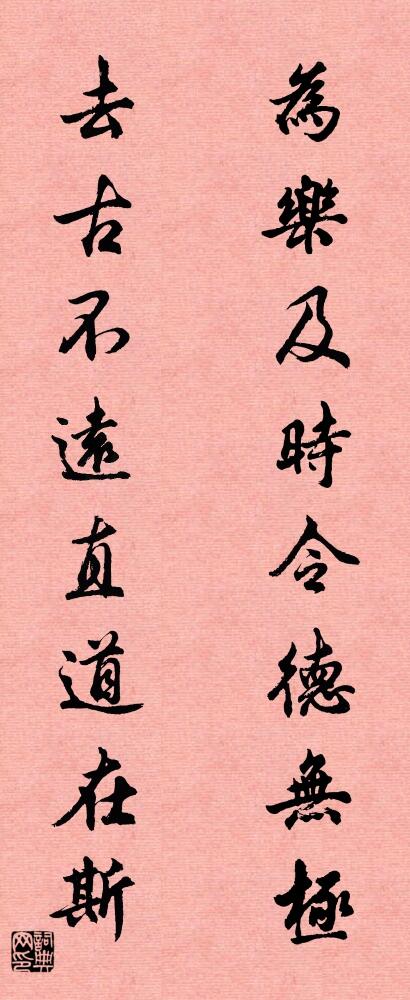 為樂及時令德無極
去古不遠直道在斯
詞典网印